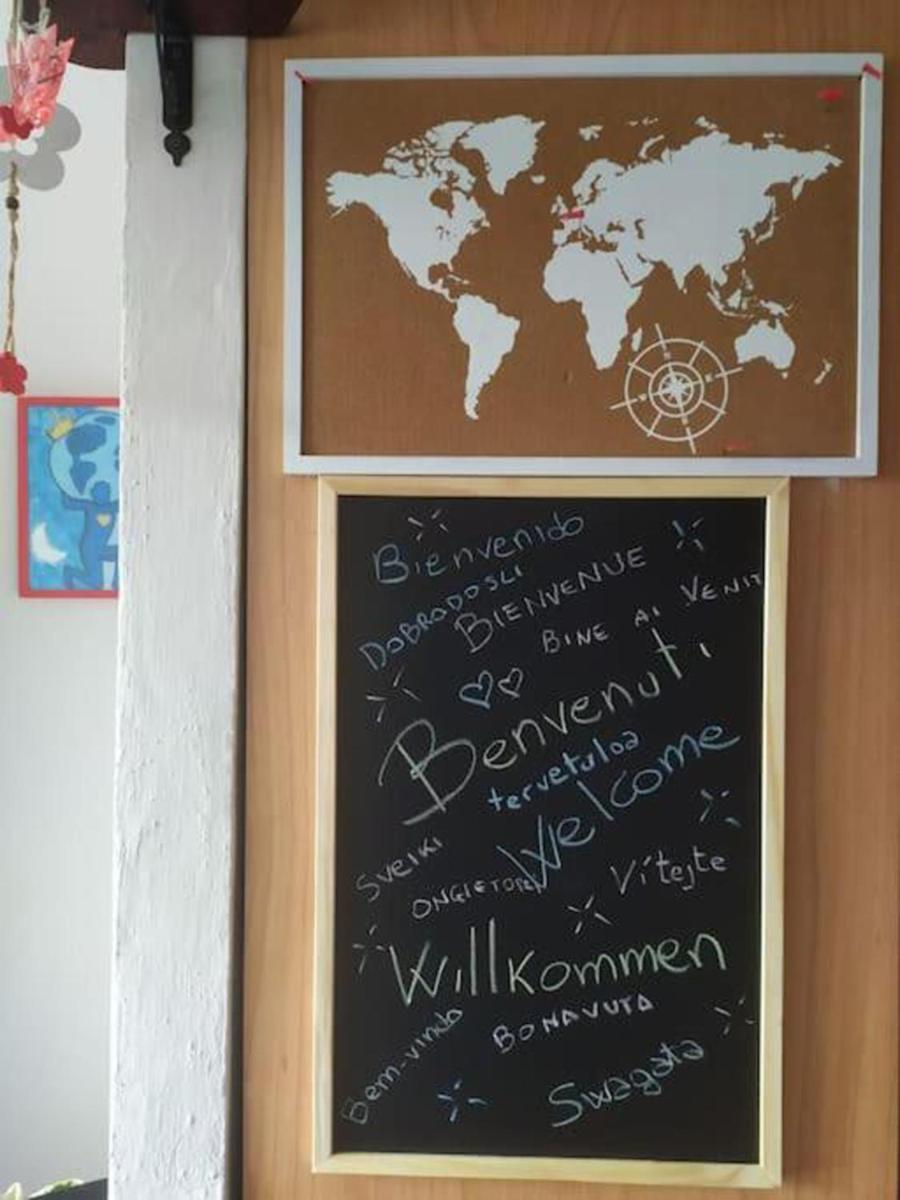 Bienvenido
DOBRODOSLI
BIENVENUE
BINE AI VENIT
Benvenuti
tervetuloa
Welcome
SVEIKI
ONGIETORRI
Vítejte
Willkommen
BONAVUTA
Bem-vindo
Swagata